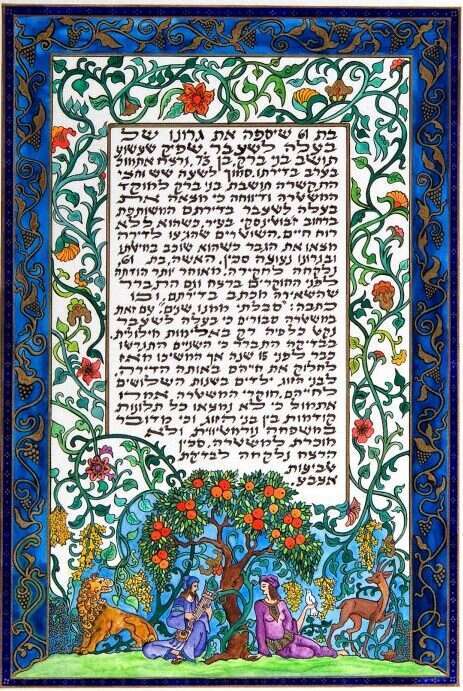 בת 61 שיספה את גרונו של
בעלה לשעבר, שפיק שעשוע
תושב בני ברק, בן 73, נרצח אתמול
בערב בדירתו. סמוך לשעה שש וחצי
התקשרה תושבת בני ברק למוקד
המשטרה ודיווחה כי מצאה את
בעלה לשעבר בדירתם המשותפת
ברחוב ז'בוטינסקי בעיר כשהוא ללא
רוח חיים. השוטרים שהגיעו לדירה
מצאו את הגבר כשהוא שוכב במיטתו
ובגרונו נעוצה סכין. האשה, בת 61,
נלקחה לחקירה. מאוחר יותר הודתה
לפני החוקרים ברצח וגם התברר
שהשאירה מכתב בדירתם, ובו
כתבה: "סבלתי ממנו שנים". עם זאת
במשטרה סבורים כי בעלה לשעבר
נקט כלפיה רק באלימות מילולית.
בבדיקה התברר כי השניים התגרשו
כבר לפני 15 שנה אך המשיכו מאז
לחלוק את חייהם באותה הדירה.
לבני הזוג ילדים בשנות השלושים
לחייהם. חוקרי המשטרה אמרו
אתמול כי לא נמצאו כל תלונות
קודמות בין בני הזוג, וכי מדובר
במשפחה נורמטיבית ולא
מוכרת למשטרה. סכין
הרצח נלקחה לבדיקת
טביעות
אצבע.